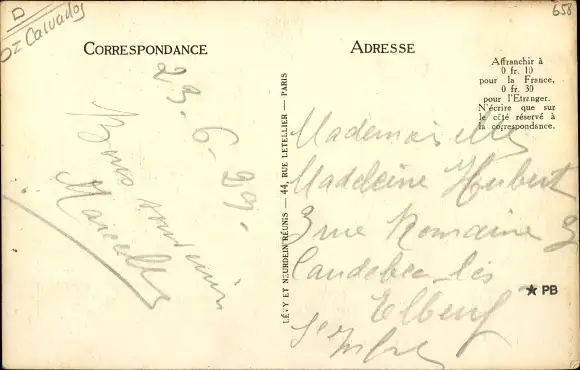 D
DZ Calvados
658
CORRESPONDANCE
23.6.29.
Bons souvenirs
Marcelle
LÉVY ET NEURDEIN RÉUNIS — 44, RUE LETELLIER — PARIS
ADRESSE
Affranchir à
0 fr. 10
pour la France,
0 fr. 30
pour l'Etranger.
N'écrire que sur
le côté réservé à
la correspondance.
Mademoiselle
Madeleine Hubert
3 rue Romaine 3
Caudebec-lès
Elbeuf
Se Infre
★ PB